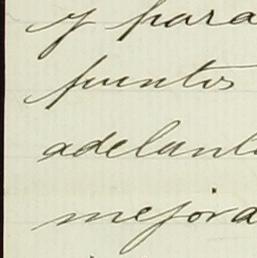 y para
puntos
adelant
mejora